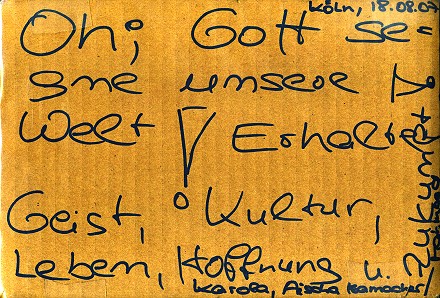 Köln, 18.08.07
Oh; Gott se=
gne unsere
Welt! Erhalte
Geist, Kultur,
Leben, Hoffnung u. Zukunft
Karola, Aischa